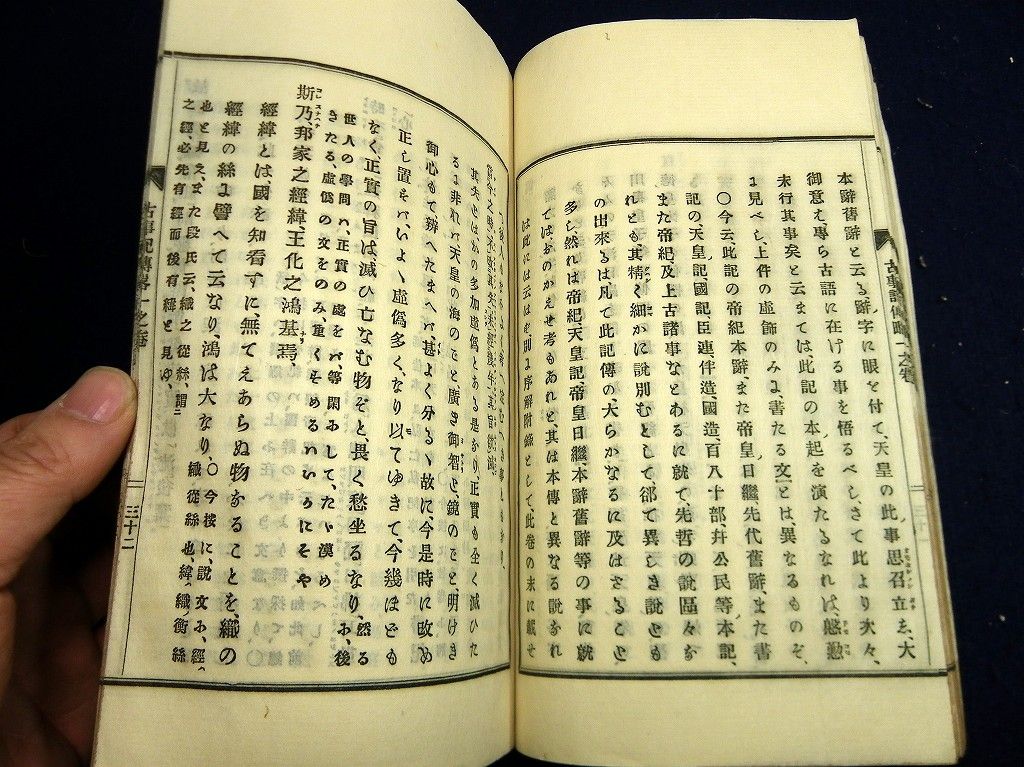 本辭舊辭と云る辭字に眼を付て、天皇の此事思召立ゝ、大
御意ゑ專ら古語に在ける事を悟るべし、さて此より次々、
未行其事矣と云までは、此記の本起を演たるなれば、慇懃
に見べし、上件の虛飾のみに、書たる文とは、異なるものぞ、
〇今云、此記の帝紀本辭また帝皇日繼先代舊辭、また書
記の天皇記、國記、臣連伴造、國造、百八十部、幷公民等、本記、
また帝紀、及上古諸事などあるに就て先哲の說區々な
れども其精く細かに說別むとして、郤て異しき說ども
の出來るは凡て此記傳の、大らかなるに及はざること
多し、然れば帝紀天皇記帝皇日繼本辭舊辭等の事に就
てはおのかえせ考もあれど、其は本傳と異なる說なれ
は此には云はず、別に序解附錄として、此卷の末に載せ
其失とはかの多加虛僞とある是なり、正實も全く滅ひた
るに非れバ天皇の海のごと廣き御智ご、鏡のごと明けき
御心もて辨へたまへバ甚よく分るゝ故に今是時に改め
正し置ずバ、いよゝ虛僞多く、なり以てゆきて、今幾ほども
なく、正實の旨は、滅ひ亡なむ物ぞと、畏く愁坐るなり、然る
世人の學問バ、正實の處をバ、等閑にして、たゞ漢め
きたる、虛僞の文をのみ重くそめるハ、いかにそや
斯乃、邦家之經緯、王化之鴻基焉
經緯とは、國を知看すに、無てえあらぬ物なることを、織の
經緯の絲に譬へて云なり鴻は大なり、〇今按に、說文に、經
織從絲也、緯、織衡絲
也と見え、また段氏云、織之從絲、謂二
之經、必先有經而後有緯と見ゆ、
古事記傳略一之卷
三十二